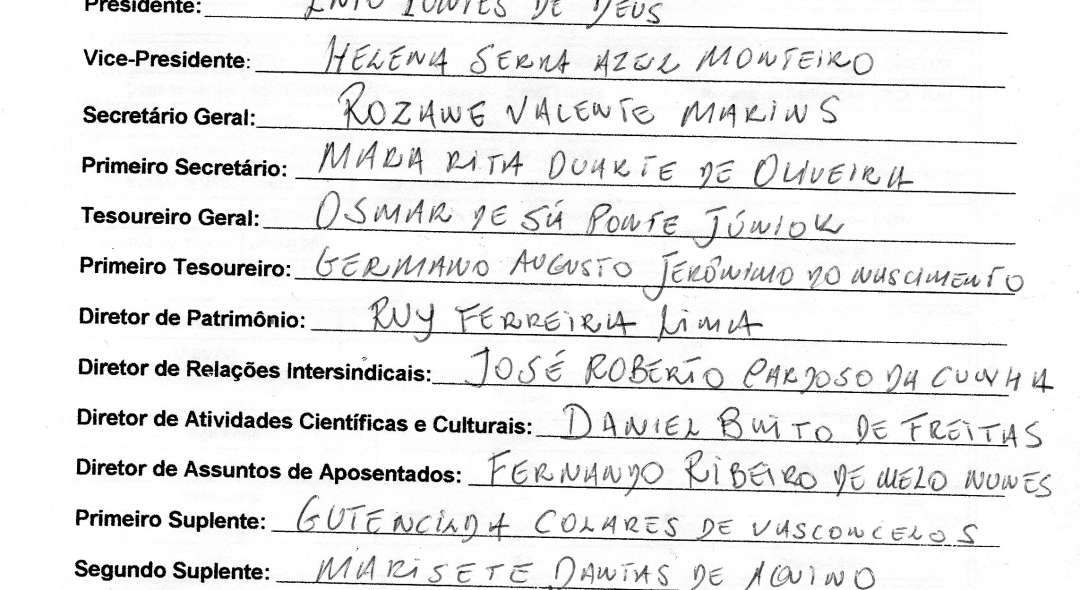 Presidente: PONTES DE DEUS
Vice-Presidente: HELENA SERRA AZUL MONTEIRO
Secretário Geral: ROZANE VALENTE MARINS
Primeiro Secretário: MARIA RITA DUARTE DE OLIVEIRA
Tesoureiro Geral: OSMAR DE SÁ PONTE JÚNIOR
Primeiro Tesoureiro: GERMANO AUGUSTO JERÔNIMO DO NASCIMENTO
Diretor de Patrimônio: RUY FERREIRA LIMA
Diretor de Relações Intersindicais: JOSÉ ROBERTO CARDOSO DA CUNHA
Diretor de Atividades Científicas e Culturais: DANIEL BRITO DE FREITAS
Diretor de Assuntos de Aposentados: FERNANDO RIBEIRO DE MELO NUNES
Primeiro Suplente: GUTENCILDA COLARES DE VASCONCELOS
Segundo Suplente: MARISETE DANTAS DE AQUINO